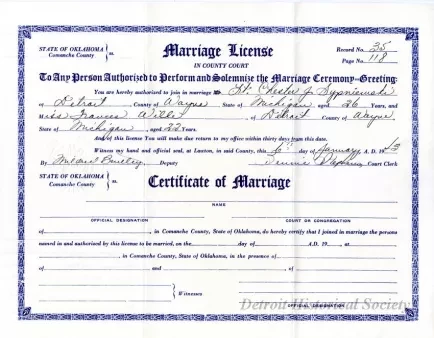 STATE OF OKLAHOMA
Comanche County } ss.
Marriage License
IN COUNTY COURT
Record No. 35
Page No. 118
To Any Person Authorized to Perform and Solemnize the Marriage Ceremony—Greeting:
You are hereby authorized to join in marriage Mr. Lt. Chester J. Sypniewski
of Detroit, County of Wayne State of Michigan, aged 26 Years, and
Miss Frances Wilk of Detroit County of Wayne,
State of Michigan, aged 22 Years.
and of this License You will make due return to my office within thirty days from this date.
Witness my hand and official seal, at Lawton, in said County, this 6th day of January A. D. 1943
By Mildred Deputy Court Clerk
STATE OF OKLAHOMA
Comanche County } ss.
Certificate of Marriage
NAME
OFFICIAL DESIGNATION COURT OR CONGREGATION
of , in Comanche County, State of Oklahoma, do hereby certify that I joined in marriage the persons
named in and authorized by this license to be married, on the day of A.D. 19 , at
, in Comanche County, State of Oklahoma, in the presence of
of and , of
} Witnesses
OFFICIAL DESIGNATION
Detroit Historical Society